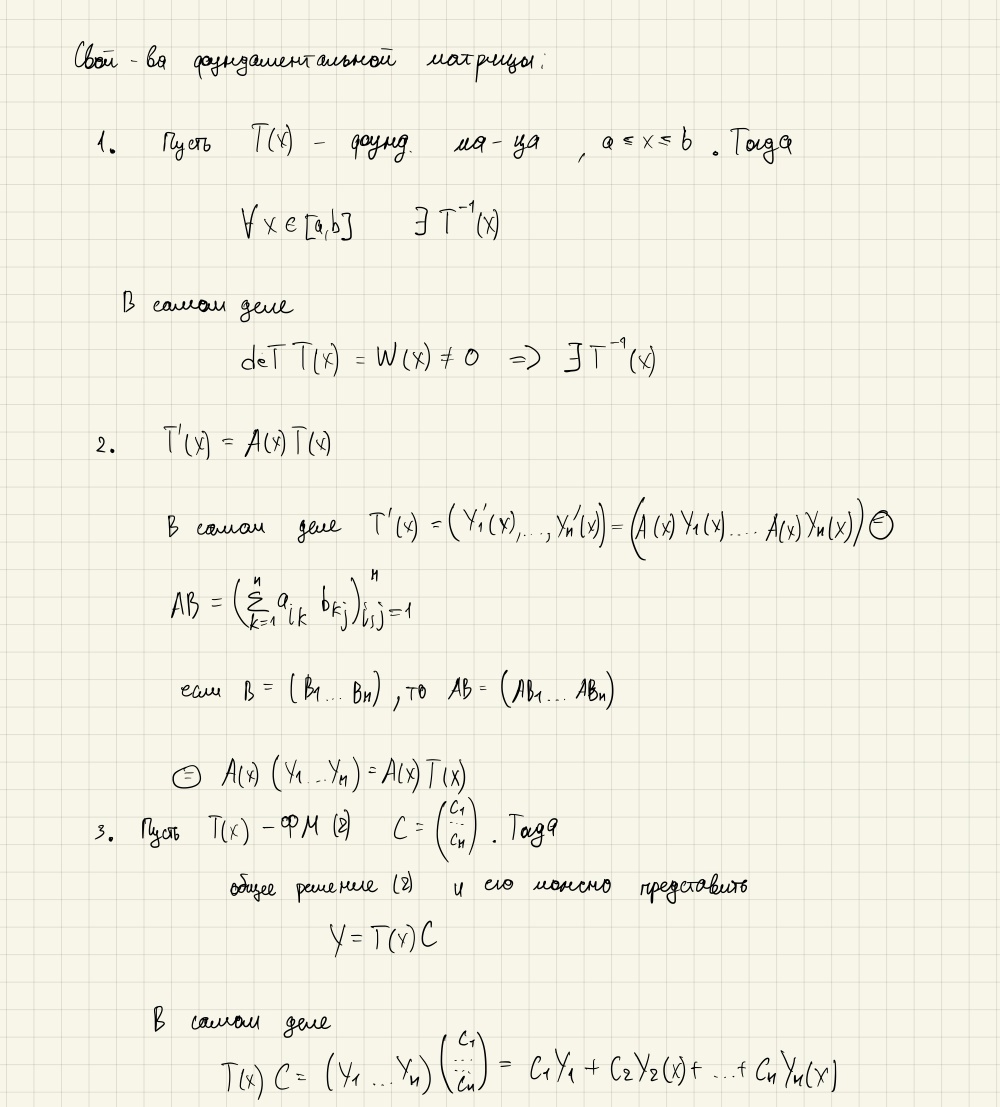 Свой-ва фундаментальной матрицы:
1. Пусть T(x) – фунд. ма-ца, a ≤ x ≤ b. Тогда
∀ x ∈ [a,b] ∃ T⁻¹(x)
В самом деле
det T(x) = W(x) ≠ 0 => ∃ T⁻¹(x)
2. T'(x) = A(x) T(x)
В самом деле T'(x) = (Y₁'(x), ..., Yₙ'(x)) = (A(x) Y₁(x) .... A(x) Yₙ(x)) ⊜
AB = (∑ₖ₌₁ⁿ aᵢₖ bₖⱼ)ⁿᵢ,ⱼ₌₁
если B = (B₁ ... Bₙ), то AB = (AB₁ ... ABₙ)
⊜ A(x) (Y₁ ... Yₙ) = A(x) T(x)
3. Пусть T(x) – ФМ (2) C = (C₁ ... Cₙ). Тогда
общее решение (2) и его можно представить
Y = T(x) C
В самом деле
T(x) C = (Y₁ ... Yₙ) (C₁ ... Cₙ) = C₁Y₁ + C₂Y₂(x) + ... + CₙYₙ(x)